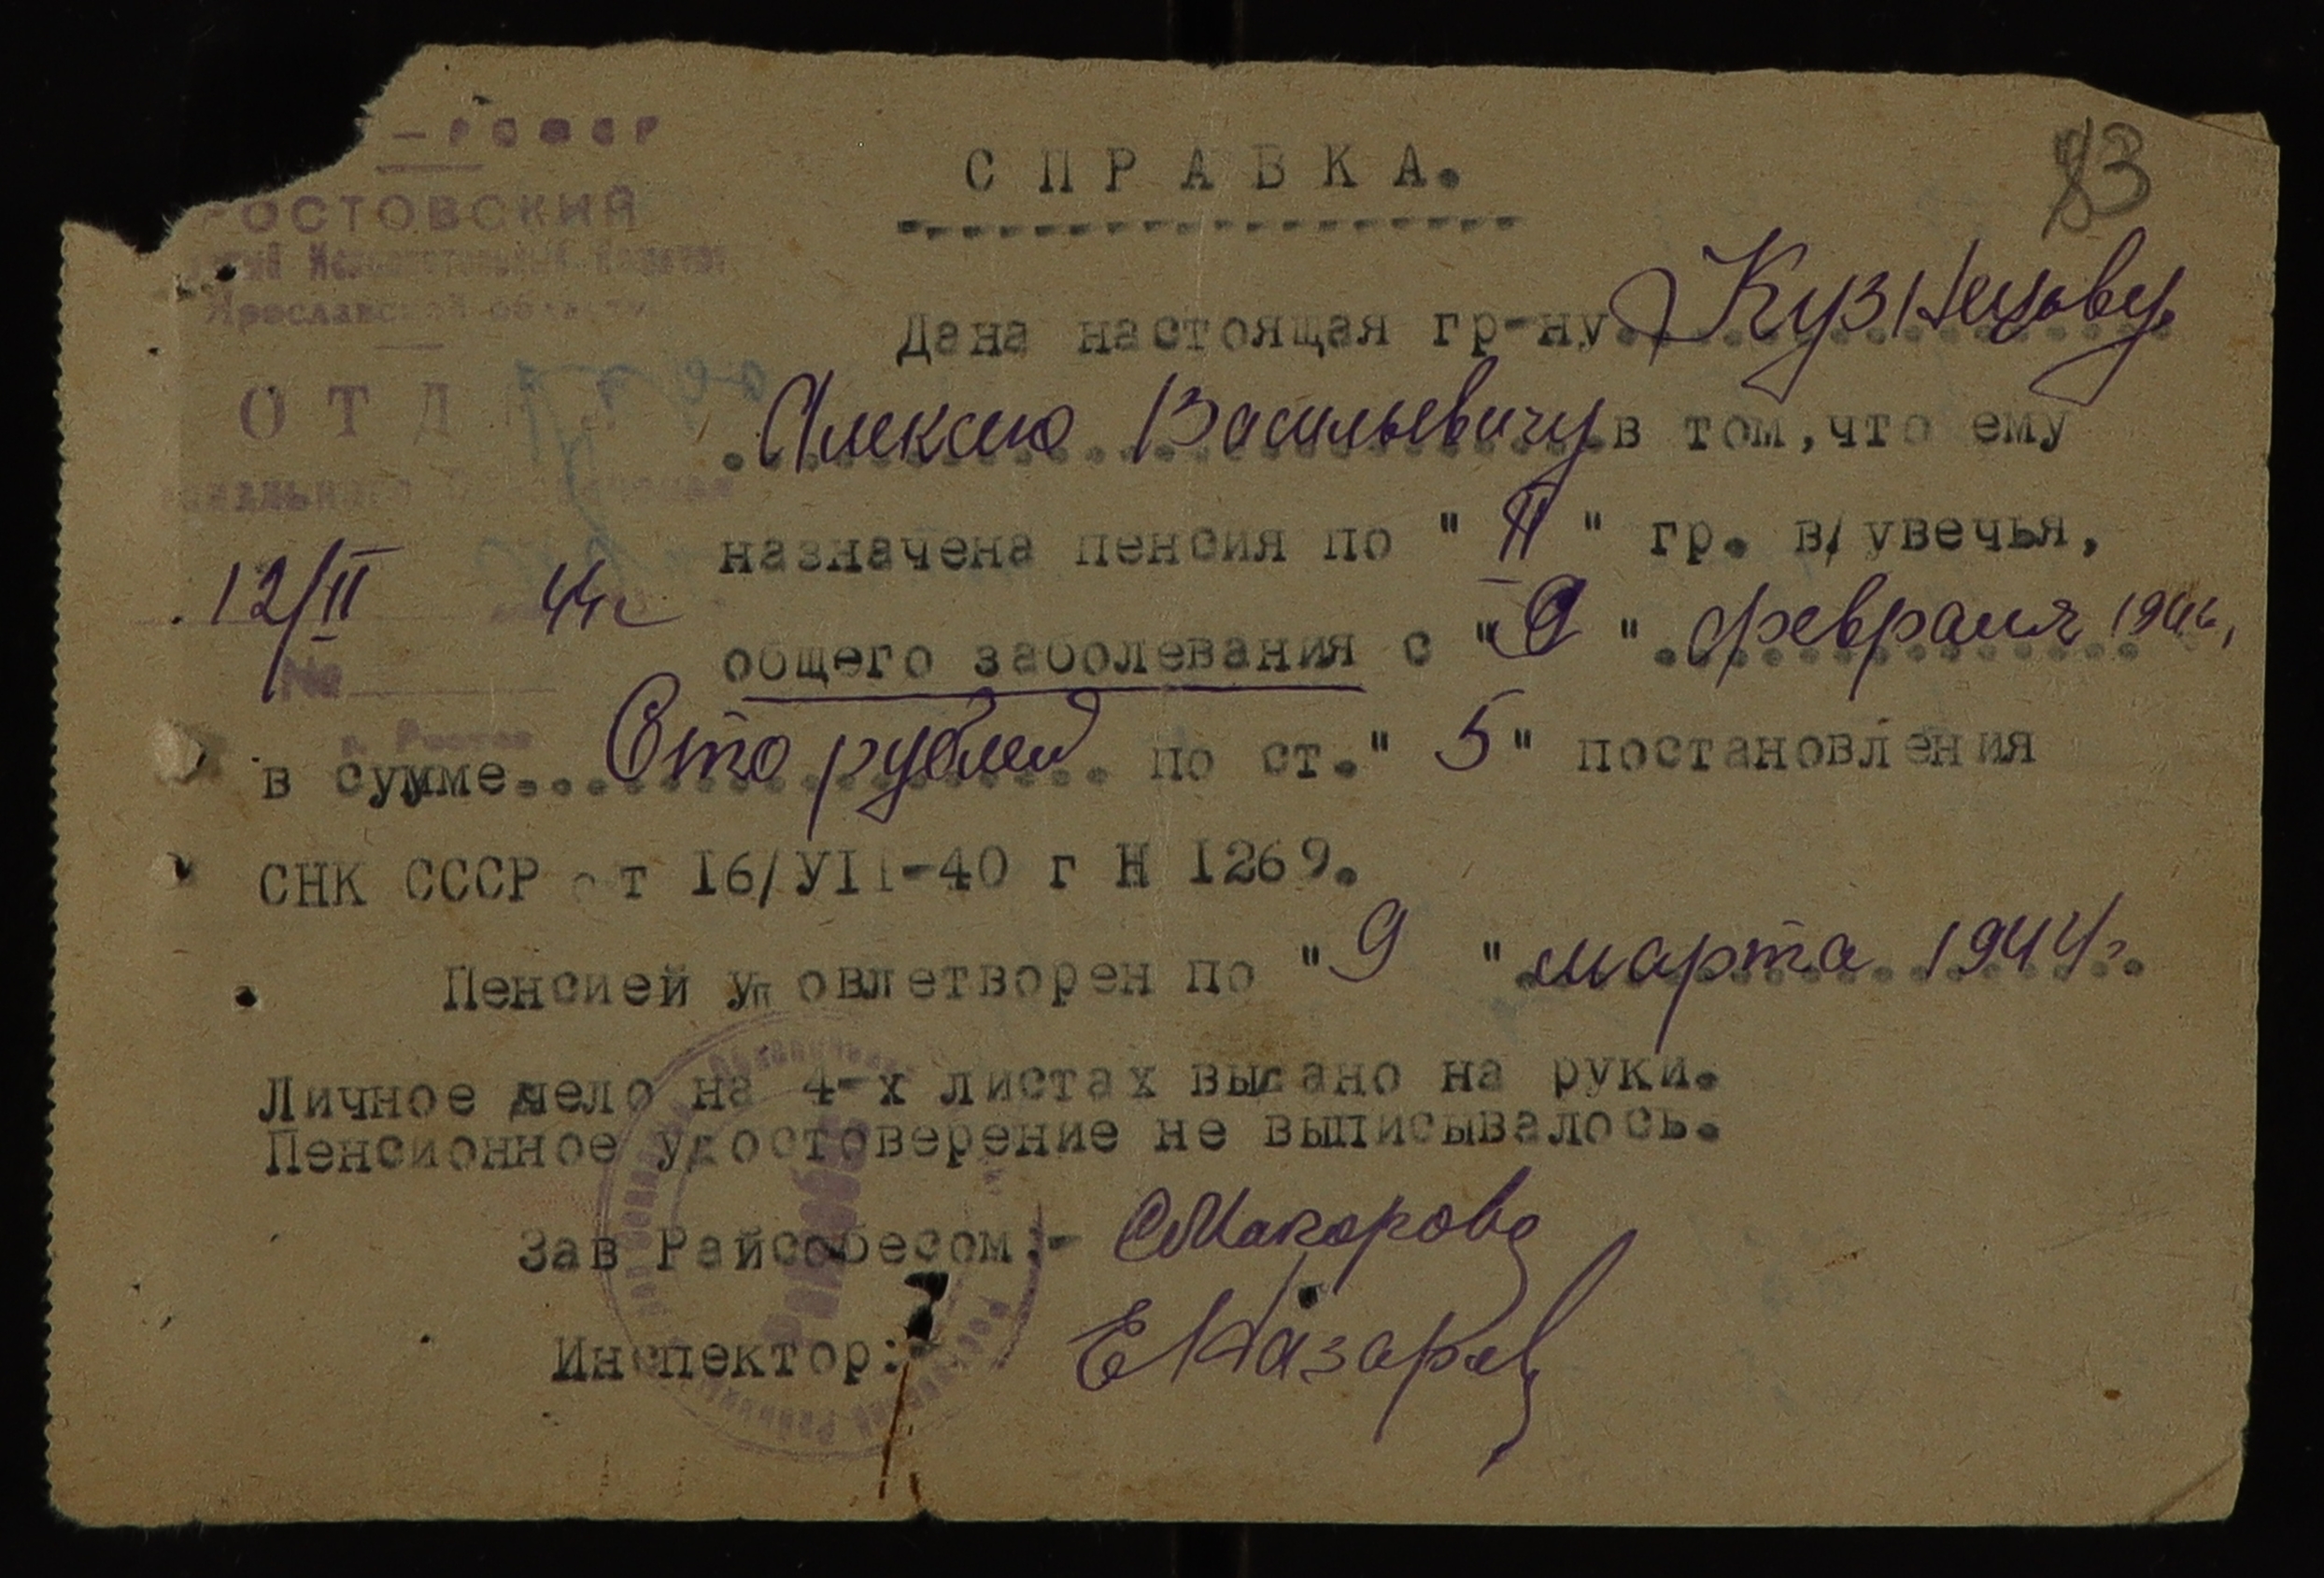 РСФСР
РОСТОВСКИЙ
Исполнительный Комитет
Ярославской области
ОТД
12/II 44г
№
г. Ростов
83
СПРАВКА.
Дана настоящая гр-ну Кузнецову
Алексею Васильевичу в том, что ему
назначена пенсия по "II" гр. в/увечья,
общего заболевания с "9" февраля 1944г,
в сумме Сто рублей по ст. "5" постановления
СНК СССР от 16/УII-40 г Н 1269.
Пенсией удовлетворен по "9" марта 1944г.
Личное дело на 4-х листах выдано на руки.
Пенсионное удостоверение не выписывалось.
Зав Райсобесом:- Макарова
Инспектор:-